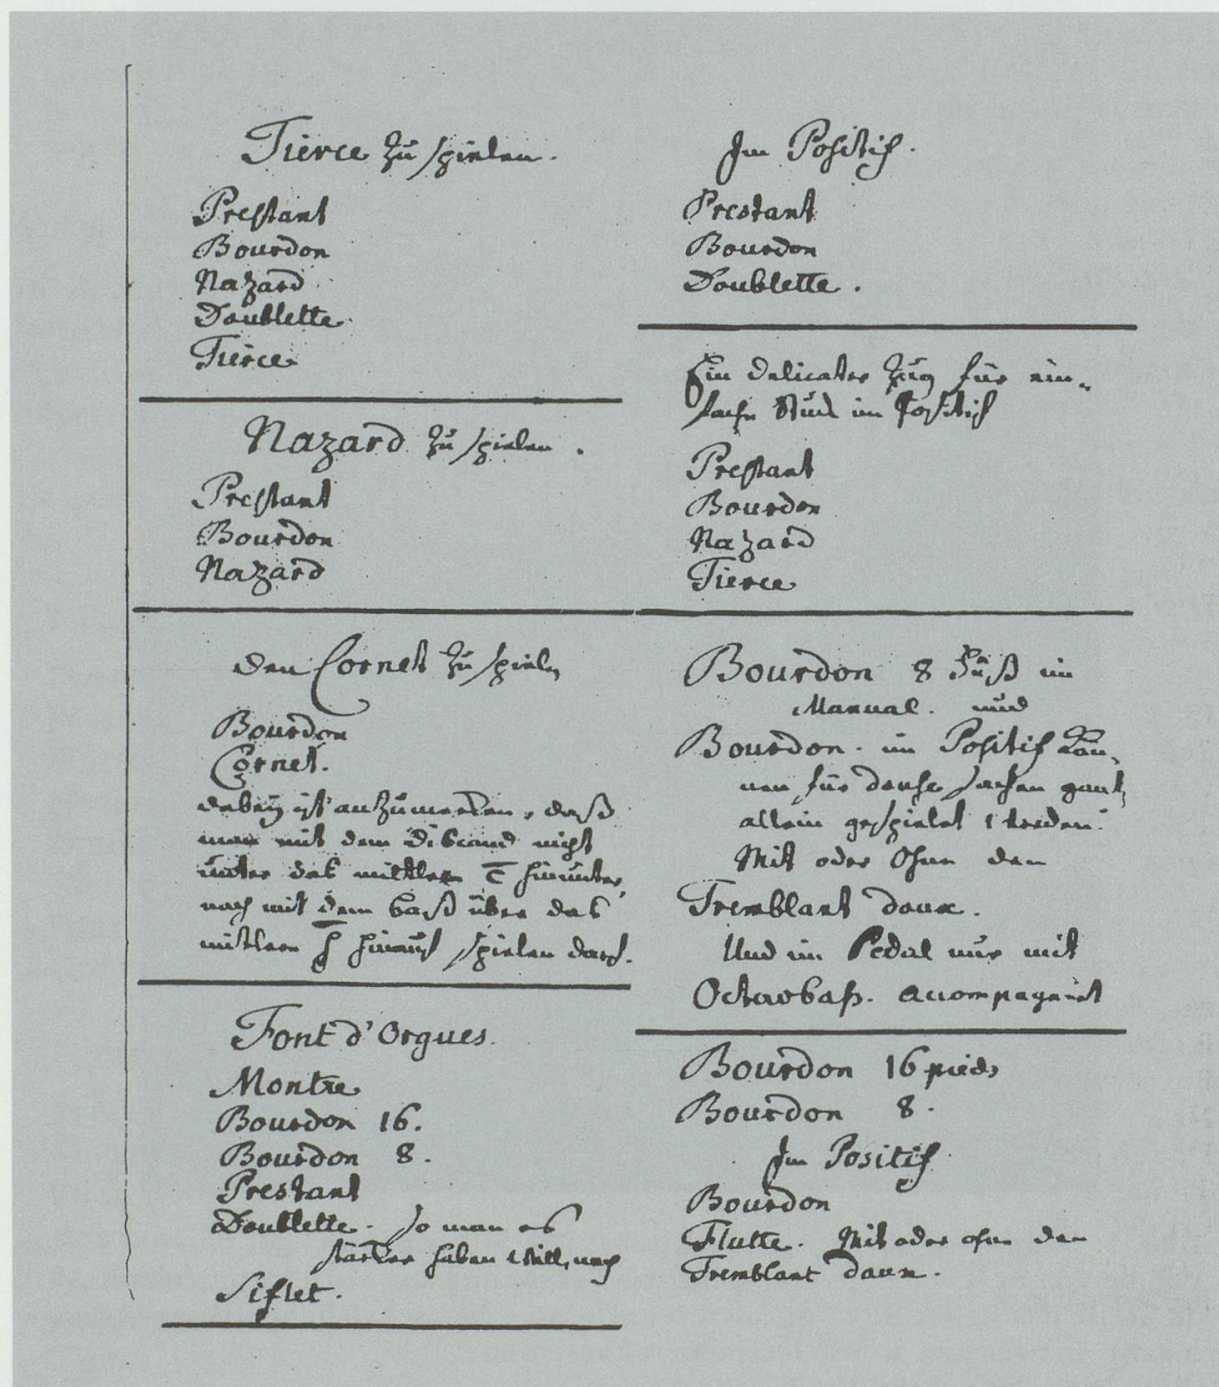 Tierce zu spielen.
Prestant
Bourdon
Nazard
Doublette
Tierce
Nazard zu spielen.
Prestant
Bourdon
Nazard
den Cornet zu spielen
Bourdon
Cornet.
dabey ist anzumercken, daß
man mit dem Discand nicht
unter das mittlere c̄ hinunter,
noch mit dem Baß über das
mittlere h̄ hinauf spielen darf.
Font d'Orgues.
Montre
Bourdon 16.
Bourdon 8.
Prestant
Doublette. So man es
stärcker haben will, noch
Siflet.
Im Positif.
Prestant
Bourdon
Doublette.
Ein delicater Zug für ein-
fache Stück im Positif
Prestant
Bourdon
Nazard
Tierce
Bourdon 8 Fuß im
Manual. und
Bourdon. im Positif kön-
nen für Sachen gantz
allein gespielet werden.
Mit oder Ohne den
Tremblant doux.
Und im Pedal nur mit
Octavbaß. accompagnirt
Bourdon 16 pieds
Bourdon 8.
Im Positif
Bourdon
Flutte. Mit oder ohne den
Tremblant doux.